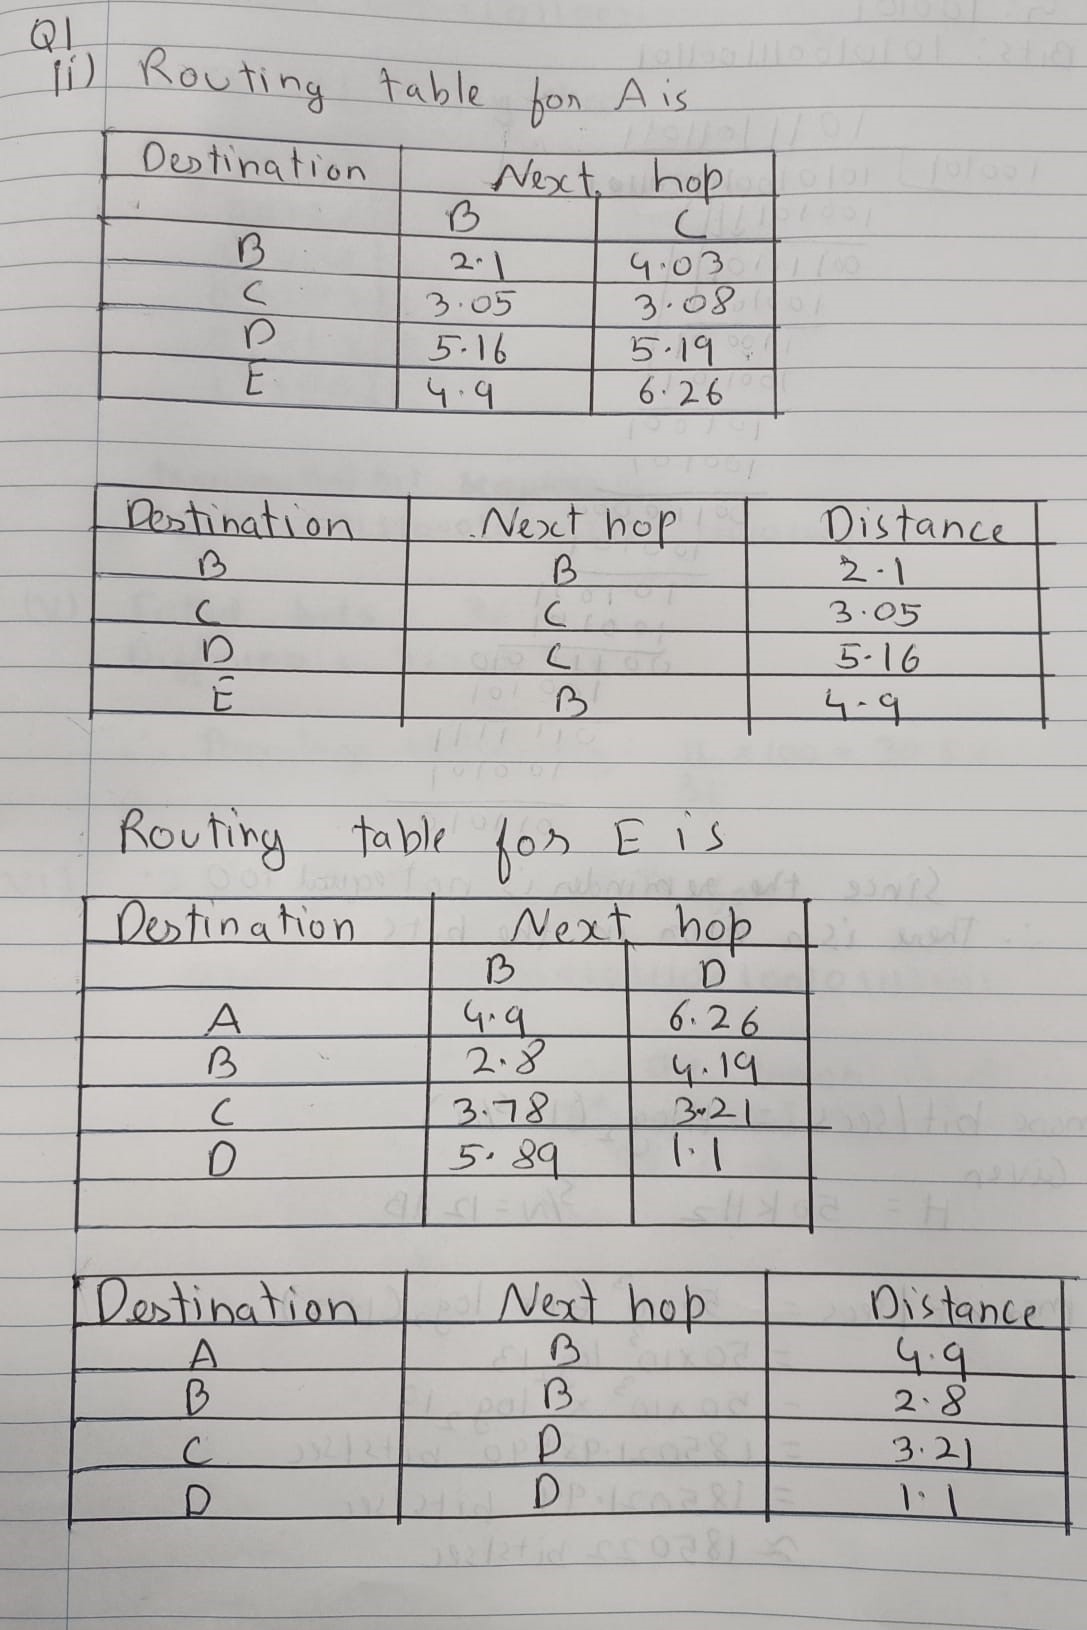 Q1
(i) Routing table for A is
Destination Next hop
B C
B 2.1 4.03
C 3.05 3.08
D 5.16 5.19
E 4.9 6.26
Destination Next hop Distance
B B 2.1
C C 3.05
D C 5.16
E B 4.9
Routing table for E is
Destination Next hop
B D
A 4.9 6.26
B 2.8 4.19
C 3.78 3.21
D 5.89 1.1
Destination Next hop Distance
A B 4.9
B B 2.8
C D 3.21
D D 1.1